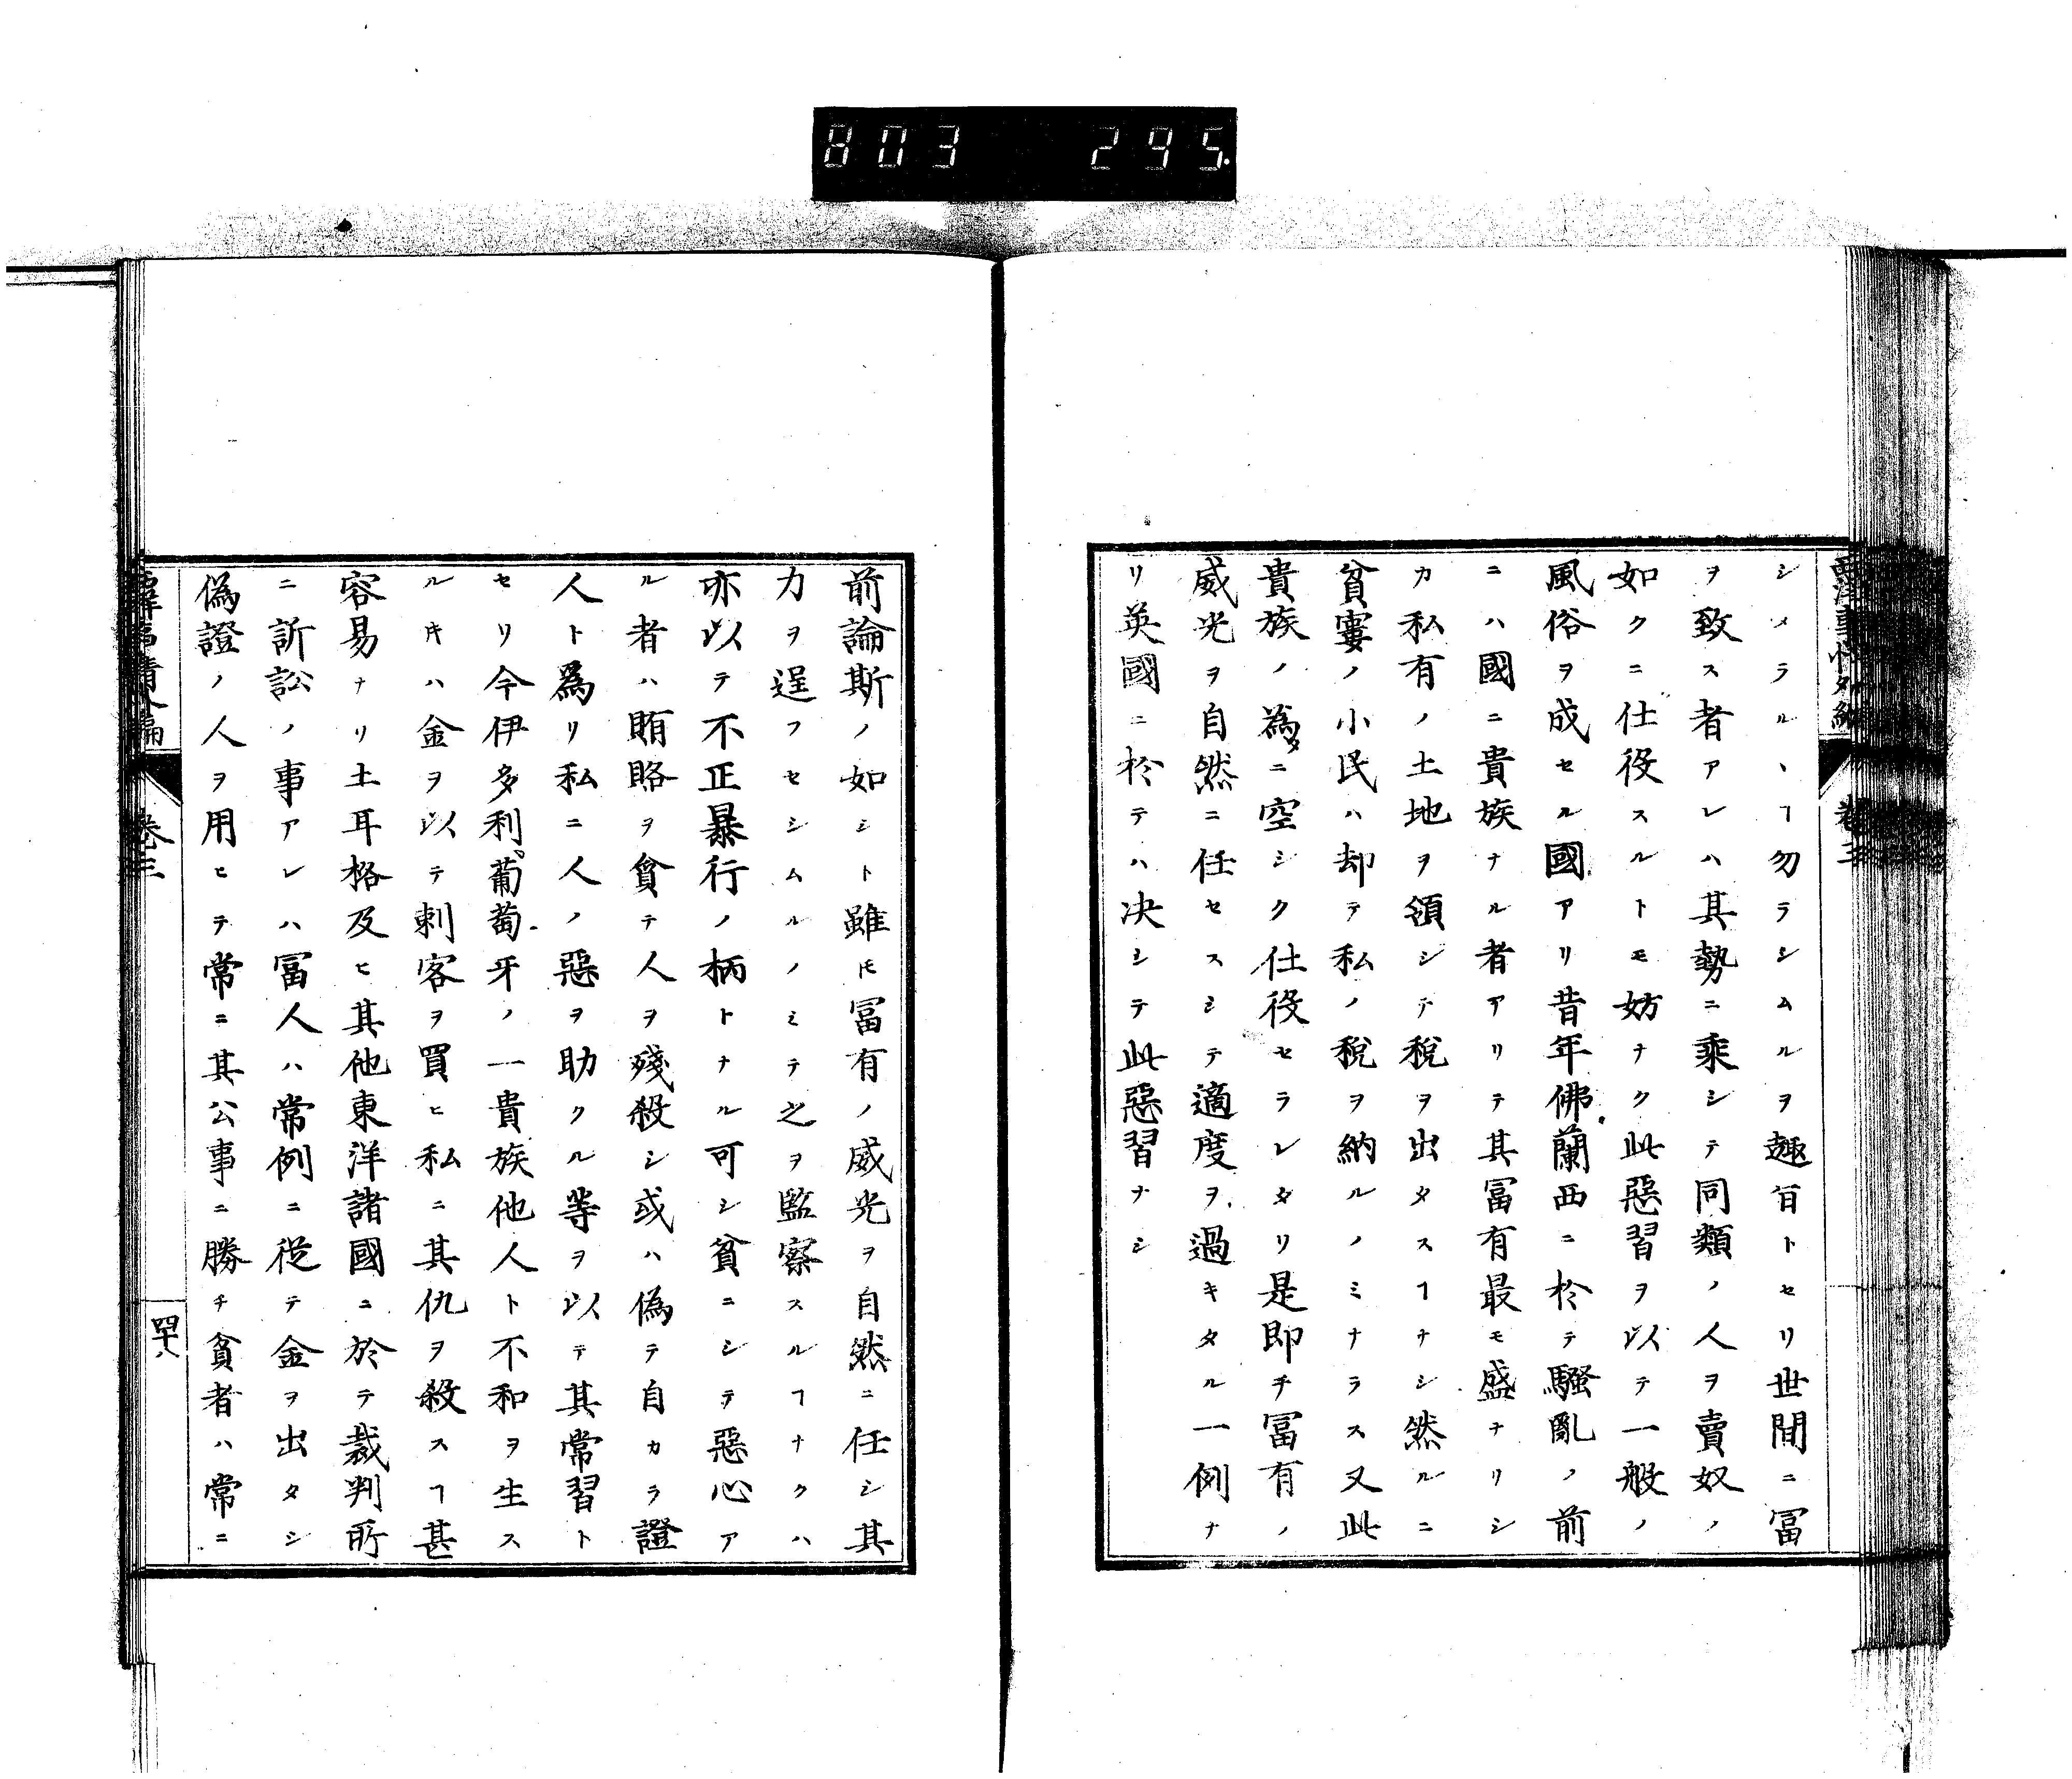 803 295
西洋事情外編 卷三
シメラルヽヿ勿ラシムルヲ趣旨トセリ世間ニ冨
ヲ致ス者アレハ其勢ニ乘シテ同類ノ人ヲ賣奴ノ
如クニ仕役スルトモ妨ナク此惡習ヲ以テ一般ノ
風俗ヲ成セル國アリ昔年佛蘭西ニ於テ騷亂ノ前
ニハ國ニ貴族ナル者アリテ其冨有最モ盛ナリシ
カ私有ノ土地ヲ領シテ稅ヲ出タスヿナシ然ルニ
貧窶ノ小民ハ却テ私ノ稅ヲ納ルノミナラス又此
貴族ノ為メニ空シク仕役セラレタリ是即チ冨有ノ
威光ヲ自然ニ任セスシテ適度ヲ過キタル一例ナ
リ英國ニ於テハ决シテ此惡習ナシ
前論斯ノ如シト雖𪜈冨有ノ威光ヲ自然ニ任シ其
力ヲ逞フセシムルノミテ之ヲ監察スルヿナクハ
亦以テ不正暴行ノ柄トナル可シ貧ニシテ惡心ア
ル者ハ賄賂ヲ貪テ人ヲ殘殺シ或ハ偽テ自カラ證
人ト爲リ私ニ人ノ惡ヲ助クル等ヲ以テ其常習ト
セリ今伊多利葡萄牙ノ一貴族他人ト不和ヲ生ス
ル𪜈ハ金ヲ以テ刺客ヲ買ヒ私ニ其仇ヲ殺スヿ甚
容易ナリ土耳格及ヒ其他東洋諸國ニ於テ裁判所
ニ訴訟ノ事アレハ冨人ハ常例ニ從テ金ヲ出タシ
偽證ノ人ヲ用ヒテ常ニ其公事ニ勝チ貧者ハ常ニ
西洋事情外編 卷三 四十八